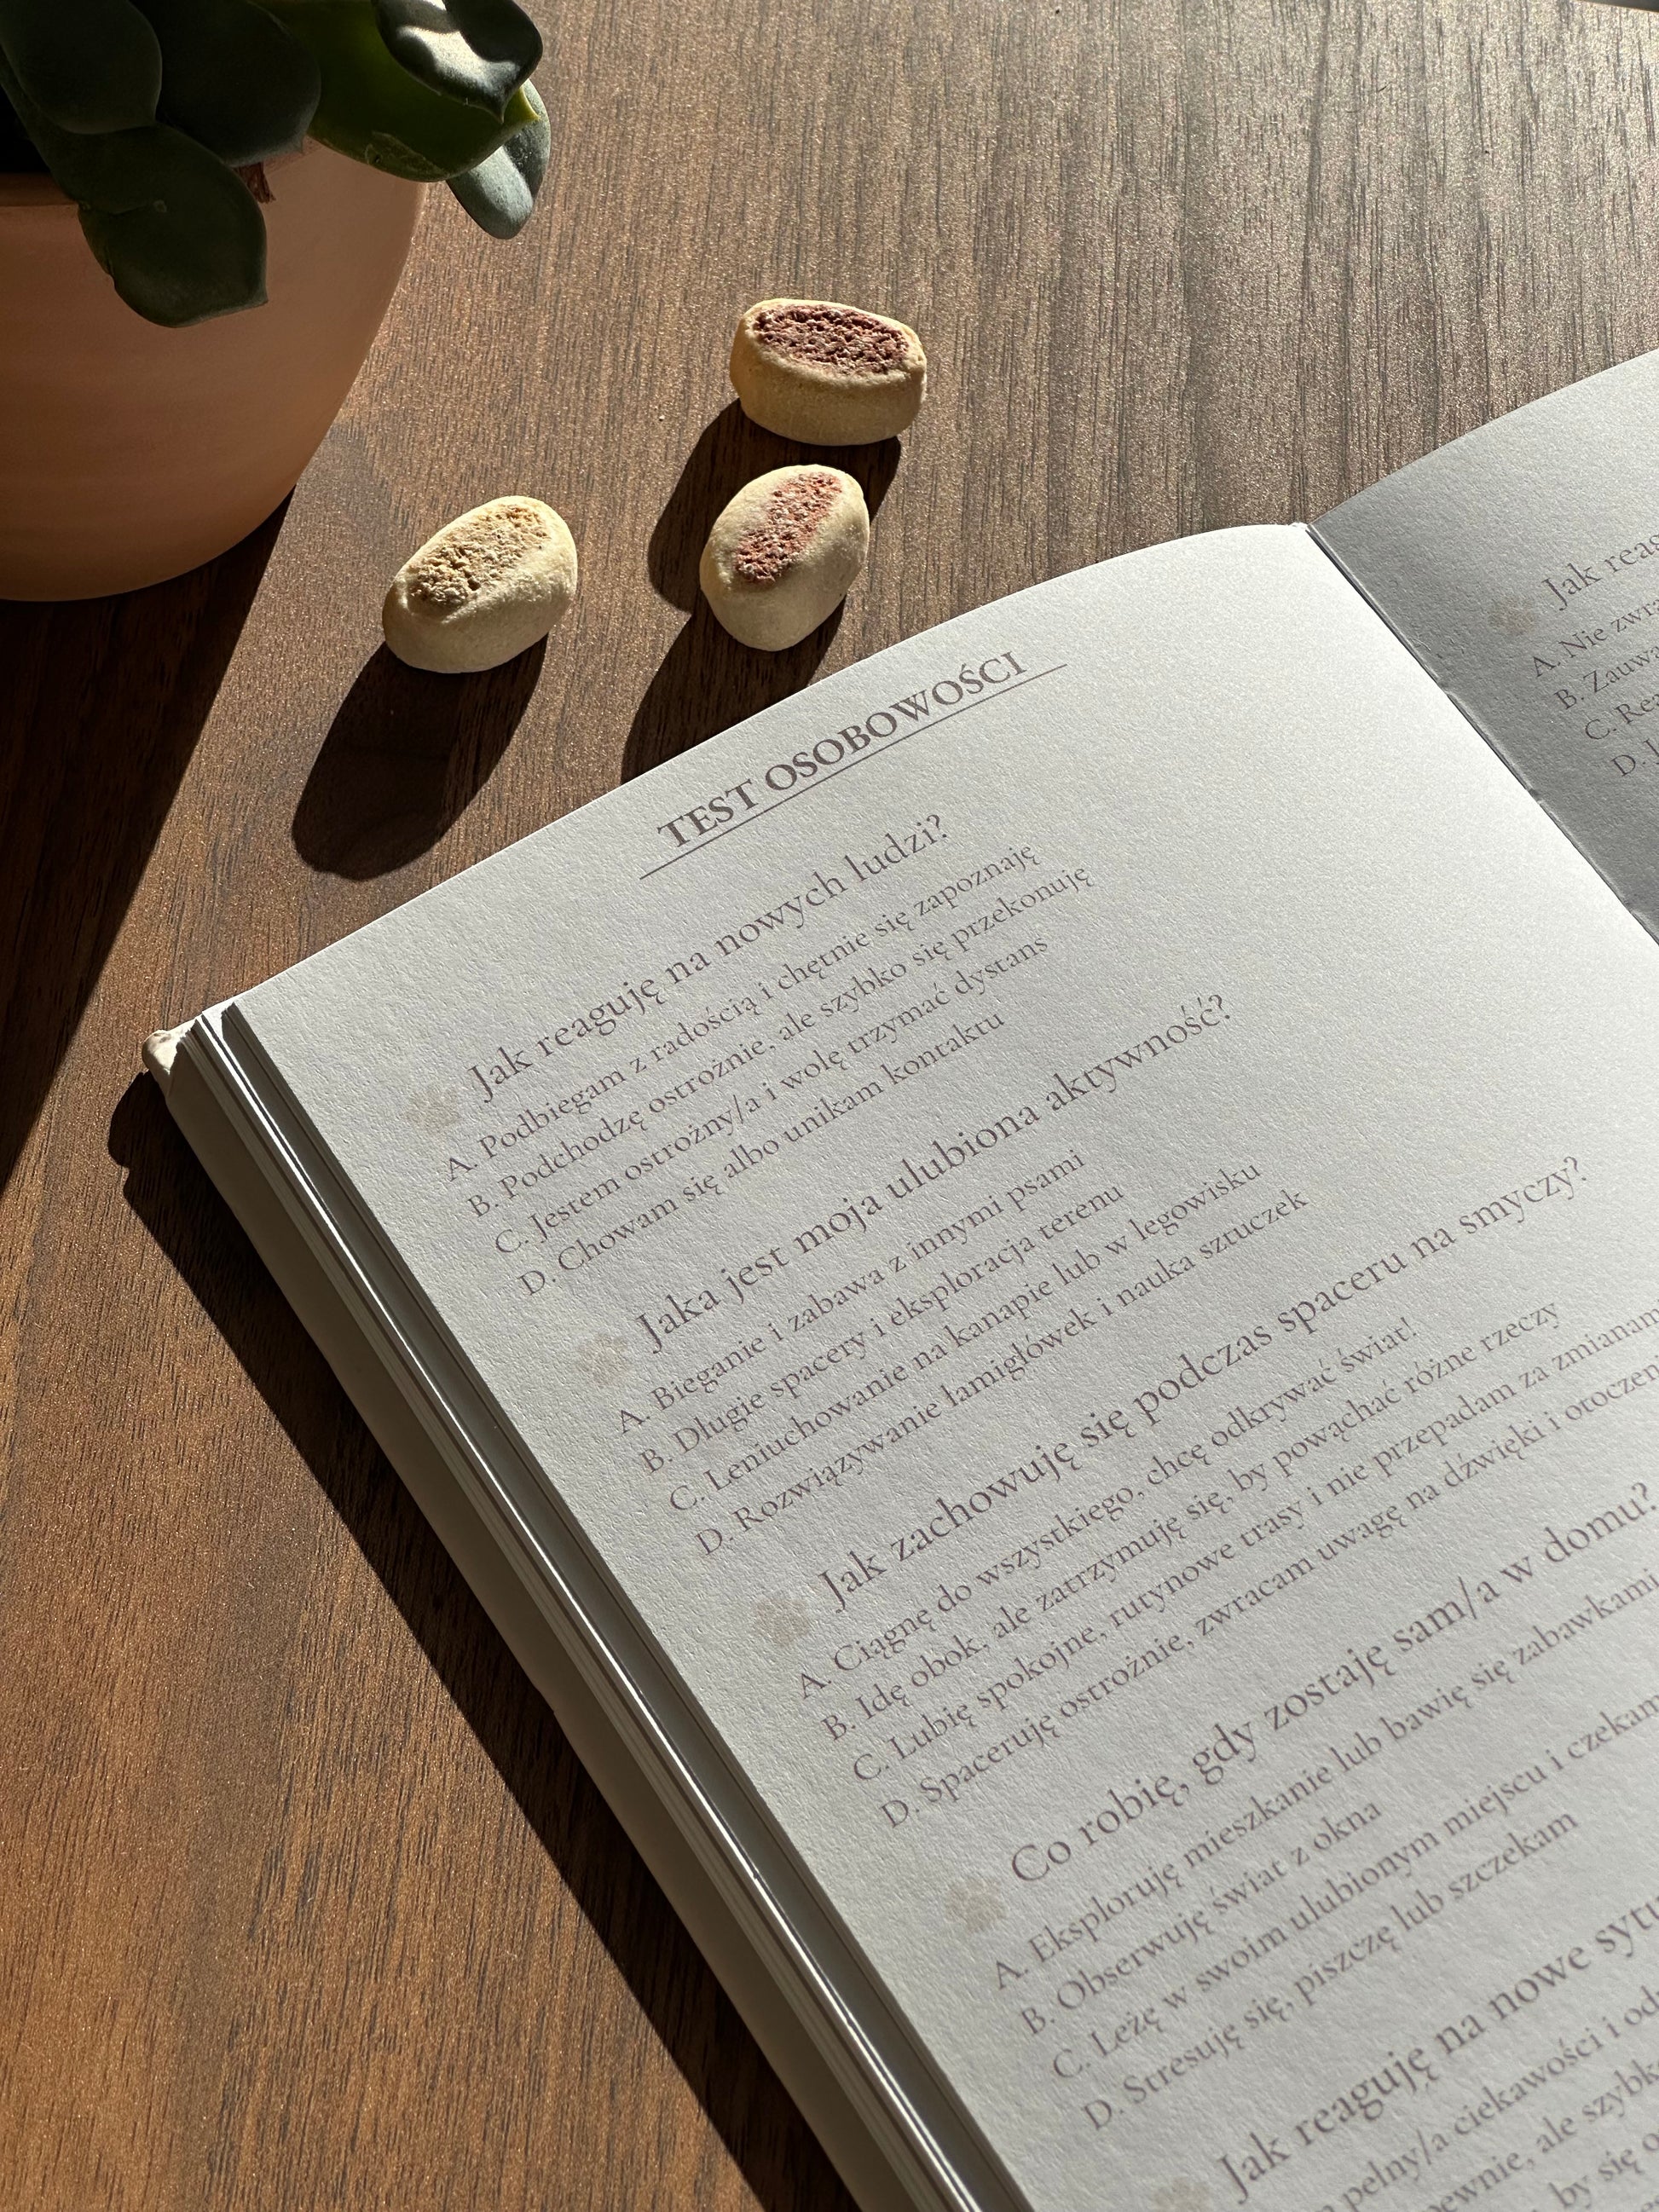 TEST OSOBOWOŚCI
Jak reaguję na nowych ludzi?
A. Podbiegam z radością i chętnie się zapoznaję
B. Podchodzę ostrożnie, ale szybko się przekonuję
C. Jestem ostrożny/a i wolę trzymać dystans
D. Chowam się albo unikam kontaktu
Jaka jest moja ulubiona aktywność?
A. Bieganie i zabawa z innymi psami
B. Długie spacery i eksploracja terenu
C. Leniuchowanie na kanapie lub w legowisku
D. Rozwiązywanie łamigłówek i nauka sztuczek
Jak zachowuję się podczas spaceru na smyczy?
A. Ciągnę do wszystkiego, chcę odkrywać świat!
B. Idę obok, ale zatrzymuję się, by powąchać różne rzeczy
C. Lubię spokojne, rutynowe trasy i nie przepadam za zmianami
D. Spaceruję ostrożnie, zwracam uwagę na dźwięki i otoczeni
Co robię, gdy zostaję sam/a w domu?
A. Eksploruję mieszkanie lub bawię się zabawkami
B. Obserwuję świat z okna
C. Leżę w swoim ulubionym miejscu i czekam
D. Stresuję się, piszczę lub szczekam
Jak reaguję na nowe sytu
pełny/a ciekawości i od
ewnie, ale szybk
by się o
Jak reag
A. Nie zwra
B. Zauwa
C. Rea
D. J